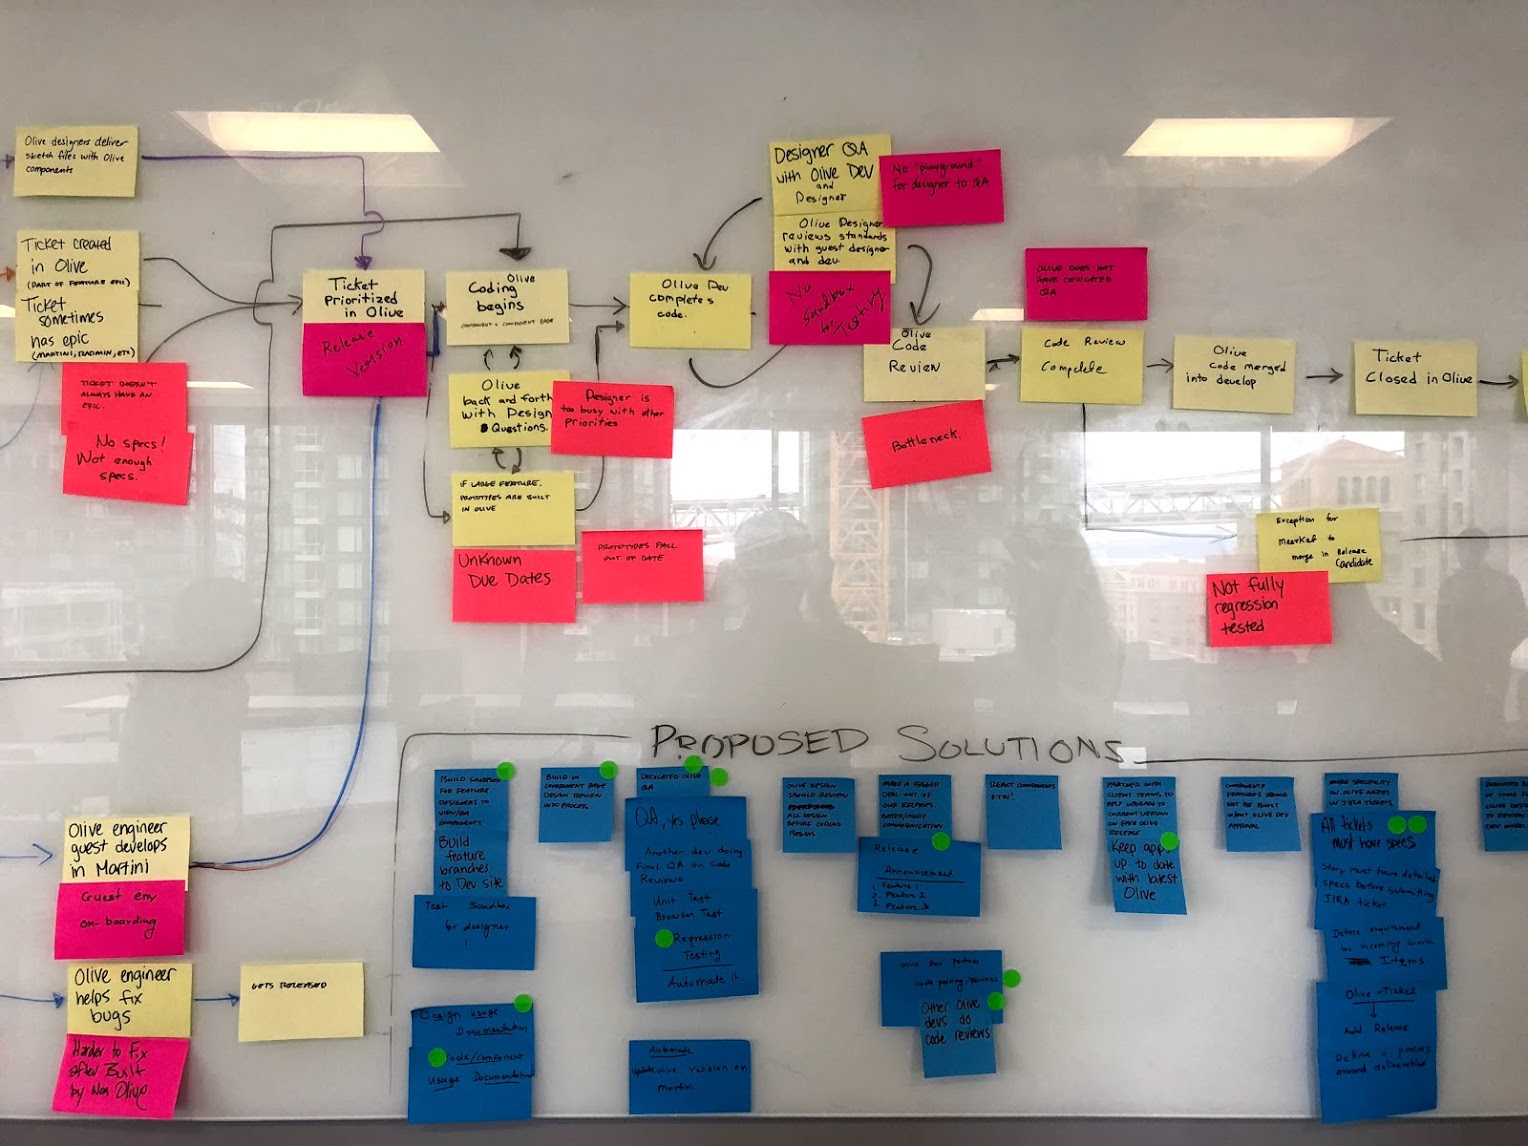 Olive designers deliver
sketch files with Olive
components
Ticket created
in Olive
(PART OF FEATURE EPIC)
Ticket
sometimes
has epic
(MARTINI, RADMIN, ETC)
TICKET DOESN'T
ALWAYS HAVE AN
EPIC.
No specs!
Not enough
specs.
Ticket
prioritized
in Olive
Release
Version
Olive
Coding
begins
Olive
back and forth
with Design
Questions.
Designer is
too busy with other
priorities
IF LARGE FEATURE,
PROTOTYPES ARE BUILT
IN OLIVE
Unknown
Due Dates
PROTOTYPES FALL
OUT OF DATE
Olive Dev
completes
code.
Designer QA
with Olive DEV
and
Designer
No "playground"
for designer to QA
Olive Designer
reviews standards
with guest designer
and dev.
No
Sandbox
for Testing
Olive
Code
Review
Bottleneck.
OLIVE DOES NOT
HAVE DEDICATED
QA
Code Review
Complete
Olive
Code merged
into develop
Ticket
Closed in Olive
Exception for
merge in Release
Candidate
Not fully
regression
tested
Olive engineer
guest develops
in Martini
Guest env
on-boarding
Olive engineer
helps fix
bugs
Harder to Fix
after Built
by Non Olive
GETS RELEASED
PROPOSED SOLUTIONS
BUILD SANDBOX
FOR FEATURE
DESIGNERS TO
VIEW/QA
COMPONENTS
Build
feature
branches
to Dev site
Test Sandbox
for designer
Design Usage
Documentation
Code/component
Usage Documentation
BUILD IN
COMPONENT PAGE
DESIGN REVIEW
INTO PROCESS
DEDICATED OLIVE
QA
QA, yes please
Another dev doing
Final QA on Code
Reviews
Unit Test
Browser Test
Regression
Testing
Automate it
Automate
update olive version on
Martini
OLIVE DESIGN
SHOULD REVIEW
ALL DESIGN
BEFORE CODING
BEGINS
MAKE A BIGGER
DEAL OUT OF
OUR RELEASES.
COMMUNICATION
Release
Announcement
1 Feature 1
2 Feature 2
3 Feature 3
Olive Dev partner
Other Olive
devs do
code reviews
REACT COMPONENTS
FTW!
PARTNER WITH
CLIENT TEAMS TO
HELP UPGRADE TO
CURRENT VERSION
RELEASE
Keep apps
up to date
with latest
Olive
COMPONENTS
FEATURES SHOULD
NOT BE BUILT
W/OUT OLIVE DEV
APPROVAL
MORE SPECIFICITY
IN JIRA TICKETS.
All tickets
must have specs
Story must have detailed
specs before submitting
JIRA ticket.
Define requirement
for incoming work
Items
Olive-Ticket
Add Release
Define a process
around